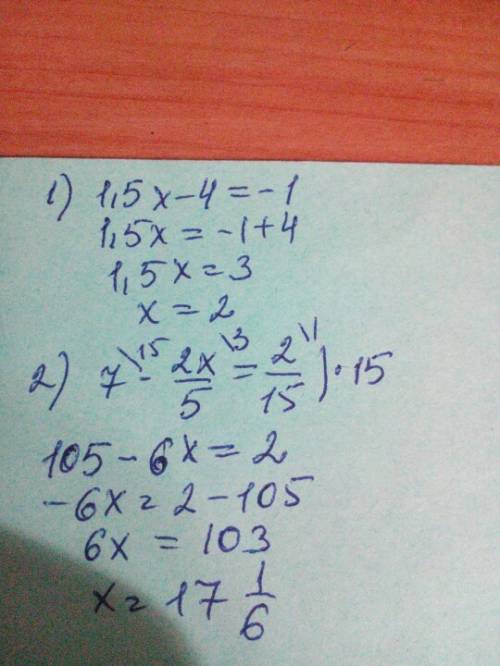 1) 1,5x-4=-1
1,5x=-1+4
1,5x=3
x=2
2) 7\15 - 2x/5\3 = 2/15\1)·15
105-6x=2
-6x=2-105
6x=103
x=17 1/6